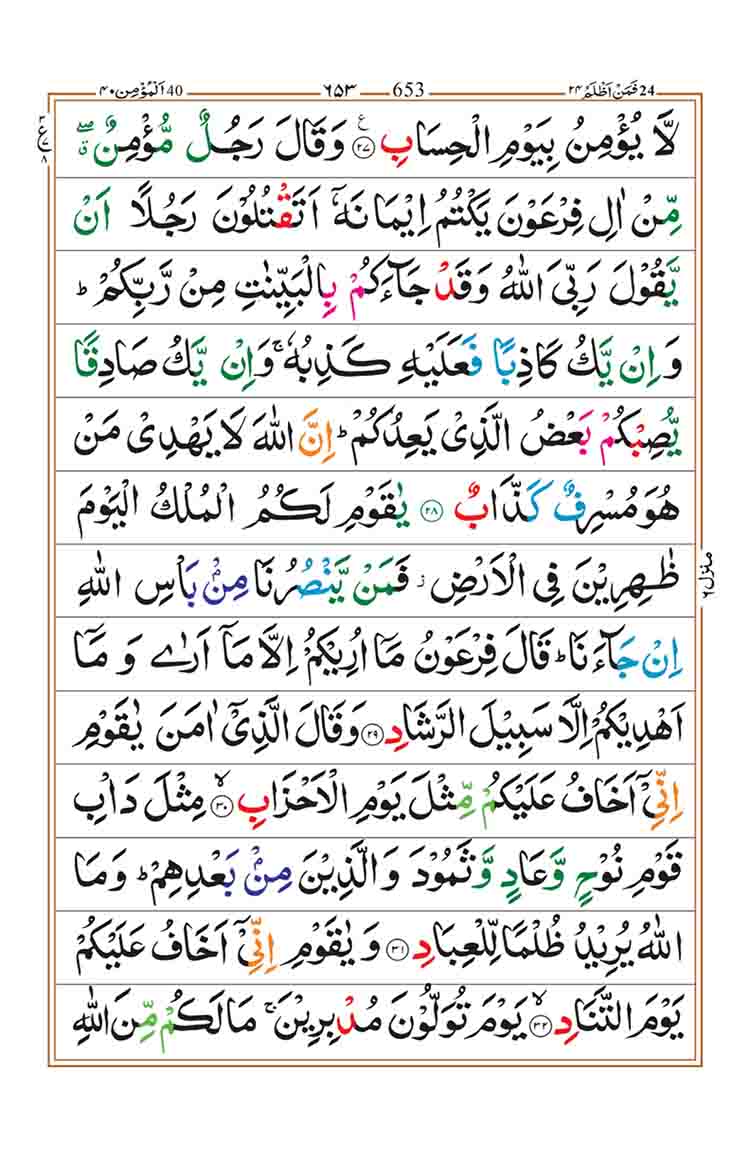 24 فَمَنْ اَظْلَمُ ۲۴ 653 ۶۵۳ 40 اَلْمُؤْمِن ۴۰
لَّا يُؤْمِنُ بِيَوْمِ الْحِسَابِ ﴿۲۷﴾ وَقَالَ رَجُلٌ مُّؤْمِنٌ
مِّنْ اٰلِ فِرْعَوْنَ يَكْتُمُ اِيْمَانَهٗۤ اَتَقْتُلُوْنَ رَجُلًا اَنْ
يَّقُوْلَ رَبِّىَ اللّٰهُ وَقَدْ جَآءَكُمْ بِالْبَيِّنٰتِ مِنْ رَّبِّكُمْ ؕ
وَاِنْ يَّكُ كَاذِبًا فَعَلَيْهِ كَذِبُهٗ ۚ وَاِنْ يَّكُ صَادِقًا
يُّصِبْكُمْ بَعْضُ الَّذِىْ يَعِدُكُمْ ؕ اِنَّ اللّٰهَ لَا يَهْدِىْ مَنْ
هُوَ مُسْرِفٌ كَذَّابٌ ﴿۲۸﴾ يٰقَوْمِ لَكُمُ الْمُلْكُ الْيَوْمَ
ظٰهِرِيْنَ فِى الْاَرْضِ ز فَمَنْ يَّنْصُرُنَا مِنْۢ بَاْسِ اللّٰهِ
اِنْ جَآءَنَا ؕ قَالَ فِرْعَوْنُ مَاۤ اُرِيْكُمْ اِلَّا مَاۤ اَرٰى وَمَاۤ
اَهْدِيْكُمْ اِلَّا سَبِيْلَ الرَّشَادِ ﴿۲۹﴾ وَقَالَ الَّذِىْۤ اٰمَنَ يٰقَوْمِ
اِنِّىْۤ اَخَافُ عَلَيْكُمْ مِّثْلَ يَوْمِ الْاَحْزَابِ ﴿۳۰﴾ۙ مِثْلَ دَاْبِ
قَوْمِ نُوْحٍ وَّعَادٍ وَّثَمُوْدَ وَالَّذِيْنَ مِنْۢ بَعْدِهِمْ ؕ وَمَا
اللّٰهُ يُرِيْدُ ظُلْمًا لِّلْعِبَادِ ﴿۳۱﴾ وَيٰقَوْمِ اِنِّىْۤ اَخَافُ عَلَيْكُمْ
يَوْمَ التَّنَادِ ﴿۳۲﴾ۙ يَوْمَ تُوَلُّوْنَ مُدْبِرِيْنَ ۚ مَا لَكُمْ مِّنَ اللّٰهِ
منزل ۶